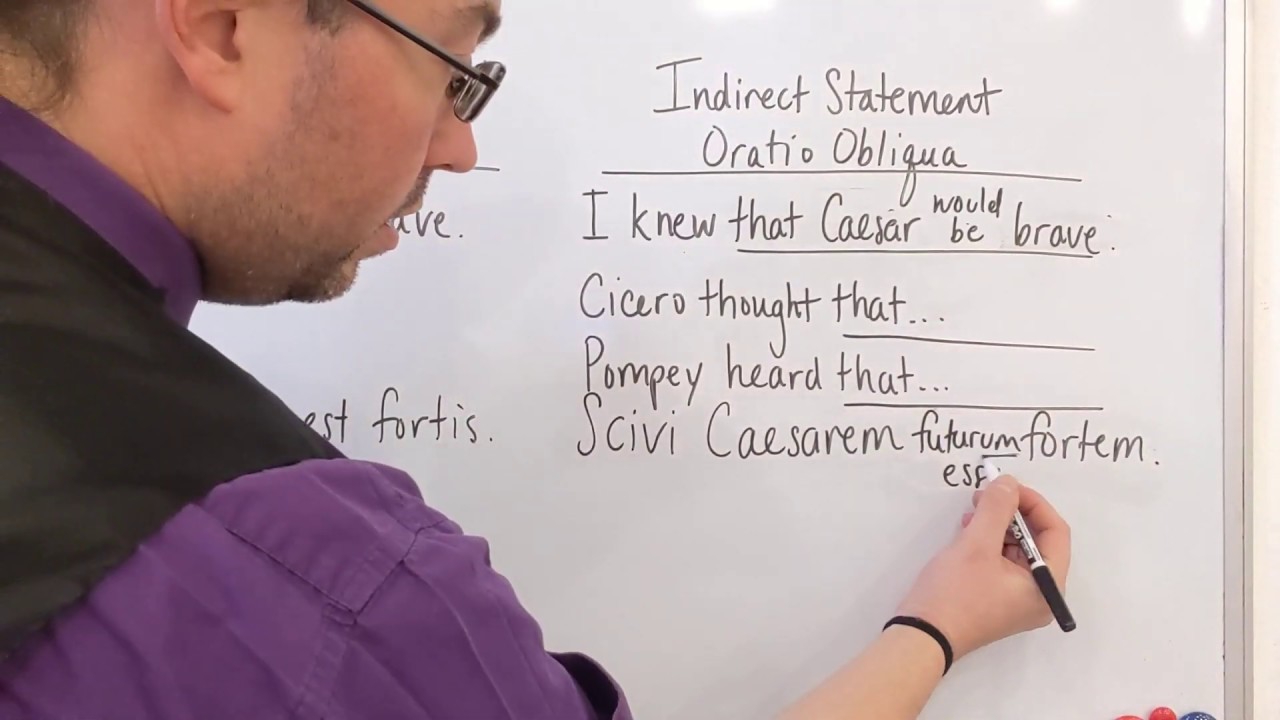 Indirect Statement
Oratio Obliqua
I knew that Caesar would be brave.
Cicero thought that...
Pompey heard that...
Scivi Caesarem futurum fortem.
est fortis.